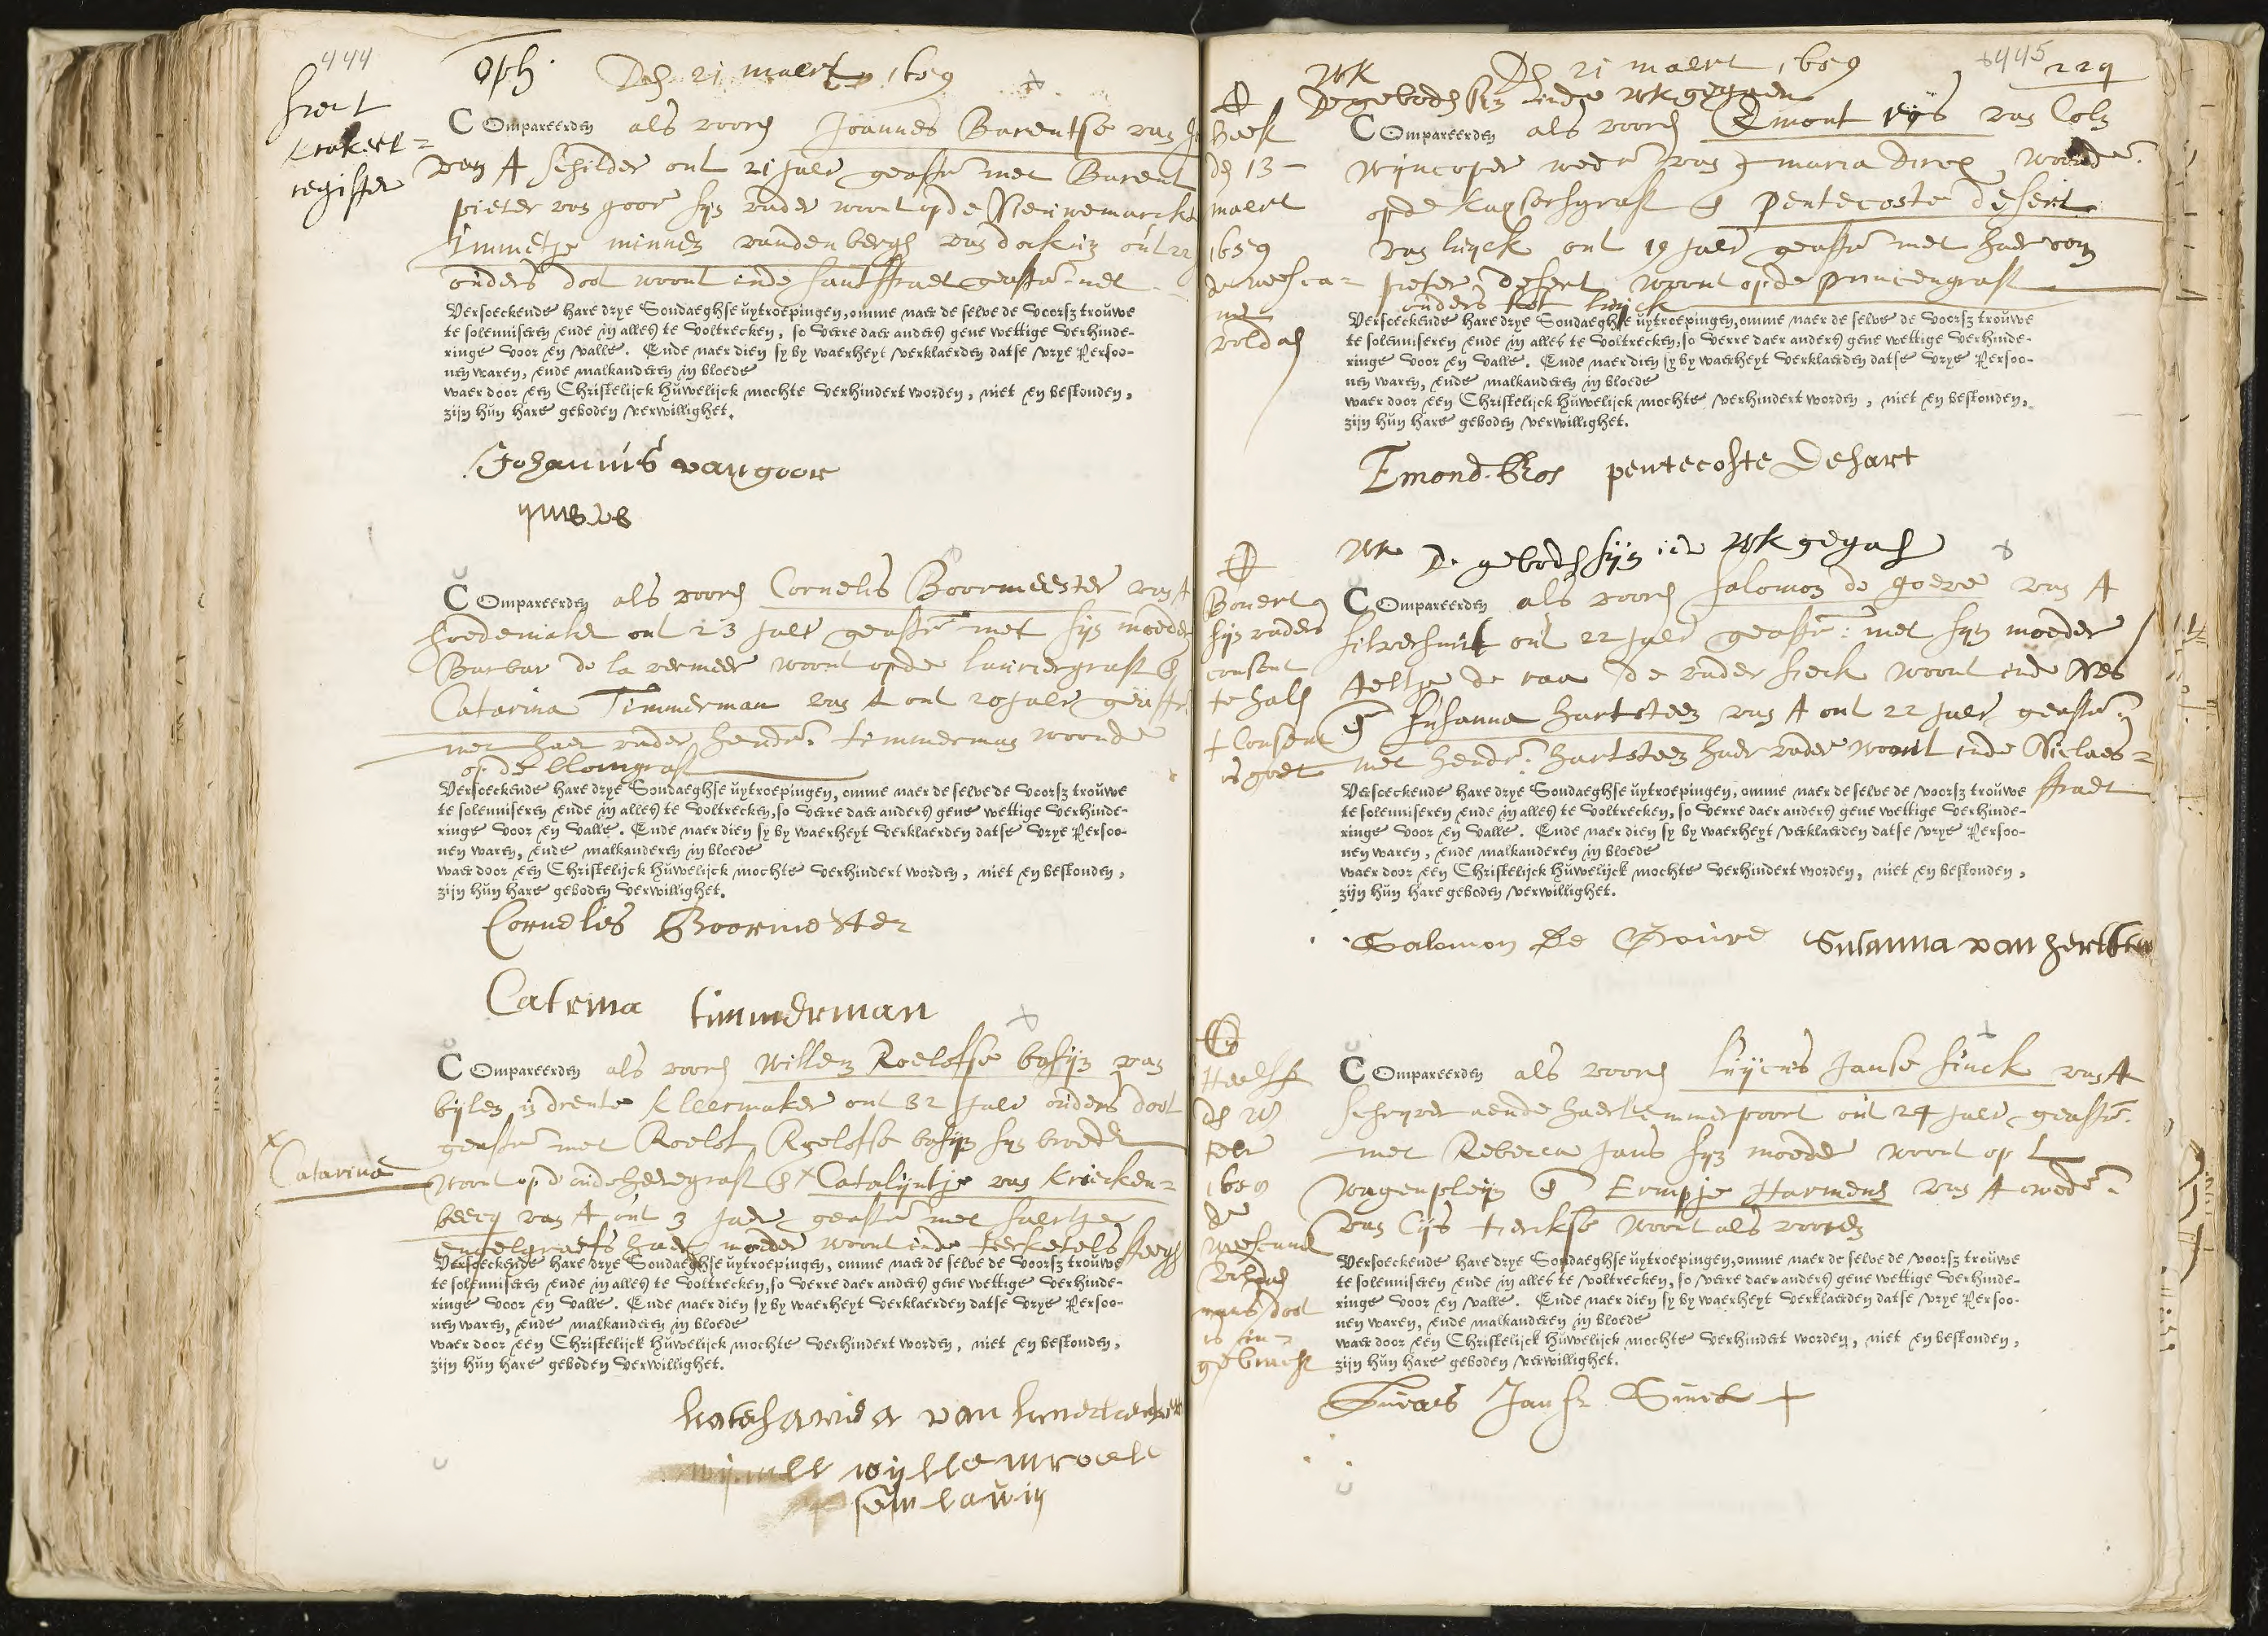 444
siet
krakeel=
register
Oph. Den 21 maert 1659
COmpareerden als vooren Joannes Barentse van
van A schilder out 21 jaer geasst met Barent
pieter van goor sijn vader woont op de Nieuwemarckt
Immetje minnes vanden bergh van dockum out 22
ouders doot woont inde santstraet geasst met
Versoeckende hare drye Sondaeghse uytroepingen, omme naer de selve de voorsz trouwe
te solemniseren ende in alles te voltrecken, so verre daer anders gene wettige verhinde-
ringe voor en valle. Ende naer dien sy by waerheyt verklaerden datse vrye Persoo-
nen waren, ende malkanderen in bloede
waer door een Christelijck huwelijck mochte verhindert worden, niet en bestonden,
zijn hun hare geboden verwillighet.
Johannis van goor
COmpareerden als vooren Cornelis Boormeester van A
hoedemaker out 23 jaer geasst met sijn moeder
Barbar de la vermeer woont op de lauriergraft &
Catarina Timmerman van A out 20 jaer geasst
met haer vader Hendr. timmerman woonde
op de blomgraft
Versoeckende hare drye Sondaeghse uytroepingen, omme naer de selve de voorsz trouwe
te solemniseren ende in alles te voltrecken, so verre daer anders gene wettige verhinde-
ringe voor en valle. Ende naer dien sy by waerheyt verklaerden datse vrye Persoo-
nen waren, ende malkanderen in bloede
waer door een Christelijck huwelijck mochte verhindert worden, niet en bestonden,
zijn hun hare geboden verwillighet.
Cornelis Boormester
Catrina timmerman
COmpareerden als vooren Willem Roelofse bosijn van
bijlen in drente kleermaker out 32 jaer ouders doot
geasst met Roelof Roelofse bosijn sijn broeder
x Catarina
woont op d'oude heregraft & x Catalijntje van Kriecken=
beecq van A out 3 jaer geasst met
engelgraefs haer moeder woont inde kerketels steegh
Versoeckende hare drye Sondaeghse uytroepingen, omme naer de selve de voorsz trouwe
te solemniseren ende in alles te voltrecken, so verre daer anders gene wettige verhinde-
ringe voor en valle. Ende naer dien sy by waerheyt verklaerden datse vrye Persoo-
nen waren, ende malkanderen in bloede
waer door een Christelijck huwelijck mochte verhindert worden, niet en bestonden,
zijn hun hare geboden verwillighet.
katharina van
wijllem roelf
sen
445
229
WK Den 21 maert 1659
De geboden sijn inde WK gegaen
heeft
den 13
maert
1659
de weesca=
mer
voldaen
COmpareerden als vooren Emont Vos van Coln
Wijncoper wedr van maria direx, woonde
op de Kaysersgraft & Pentecoste desert
van luyck out 19 jaer geasst met haer oom
pieter desert woont op de princengraft
ouders tot luijck
Versoeckende hare drye Sondaeghse uytroepingen, omme naer de selve de voorsz trouwe
te solemniseren ende in alles te voltrecken, so verre daer anders gene wettige verhinde-
ringe voor en valle. Ende naer dien sy by waerheyt verklaerden datse vrye Persoo-
nen waren, ende malkanderen in bloede
waer door een Christelijck huwelijck mochte verhindert worden, niet en bestonden,
zijn hun hare geboden verwillighet.
Emond Vos pentecoste Desart
WK De geboden sijn inde WK gegaen
sijn vaders
consent
te halen
+ Consent
is goet
COmpareerden als vooren Salomon de goeve van A
silversmit out 22 jaer geasst: met sijn moeder
Aeltje de raa de vader sieck woont inde Nes
& Susanna Hartsteen van A out 22 jaer geasst
met Hendr. Hartsteen haer vader woont inde Niclaes=
straet
Versoeckende hare drye Sondaeghse uytroepingen, omme naer de selve de voorsz trouwe
te solemniseren ende in alles te voltrecken, so verre daer anders gene wettige verhinde-
ringe voor en valle. Ende naer dien sy by waerheyt verklaerden datse vrye Persoo-
nen waren, ende malkanderen in bloede
waer door een Christelijck huwelijck mochte verhindert worden, niet en bestonden,
zijn hun hare geboden verwillighet.
Salomon De Gouve Susanna van
heeft
den
febr
1659
de
weescamer
voldaen
mans doot
is in=
gebracht
COmpareerden als vooren luijcas Janse sinck van A
schryver aende haerlemmerpoort out 24 jaer geasst.
met Rebecca Jans sijn moeder woont op t
Wagenpleijn & Ermpje Harmens van A wede.
van Cijs dierkse woont als vooren
Versoeckende hare drye Sondaeghse uytroepingen, omme naer de selve de voorsz trouwe
te solemniseren ende in alles te voltrecken, so verre daer anders gene wettige verhinde-
ringe voor en valle. Ende naer dien sy by waerheyt verklaerden datse vrye Persoo-
nen waren, ende malkanderen in bloede
waer door een Christelijck huwelijck mochte verhindert worden, niet en bestonden,
zijn hun hare geboden verwillighet.
Lucas Jansz Sinck +